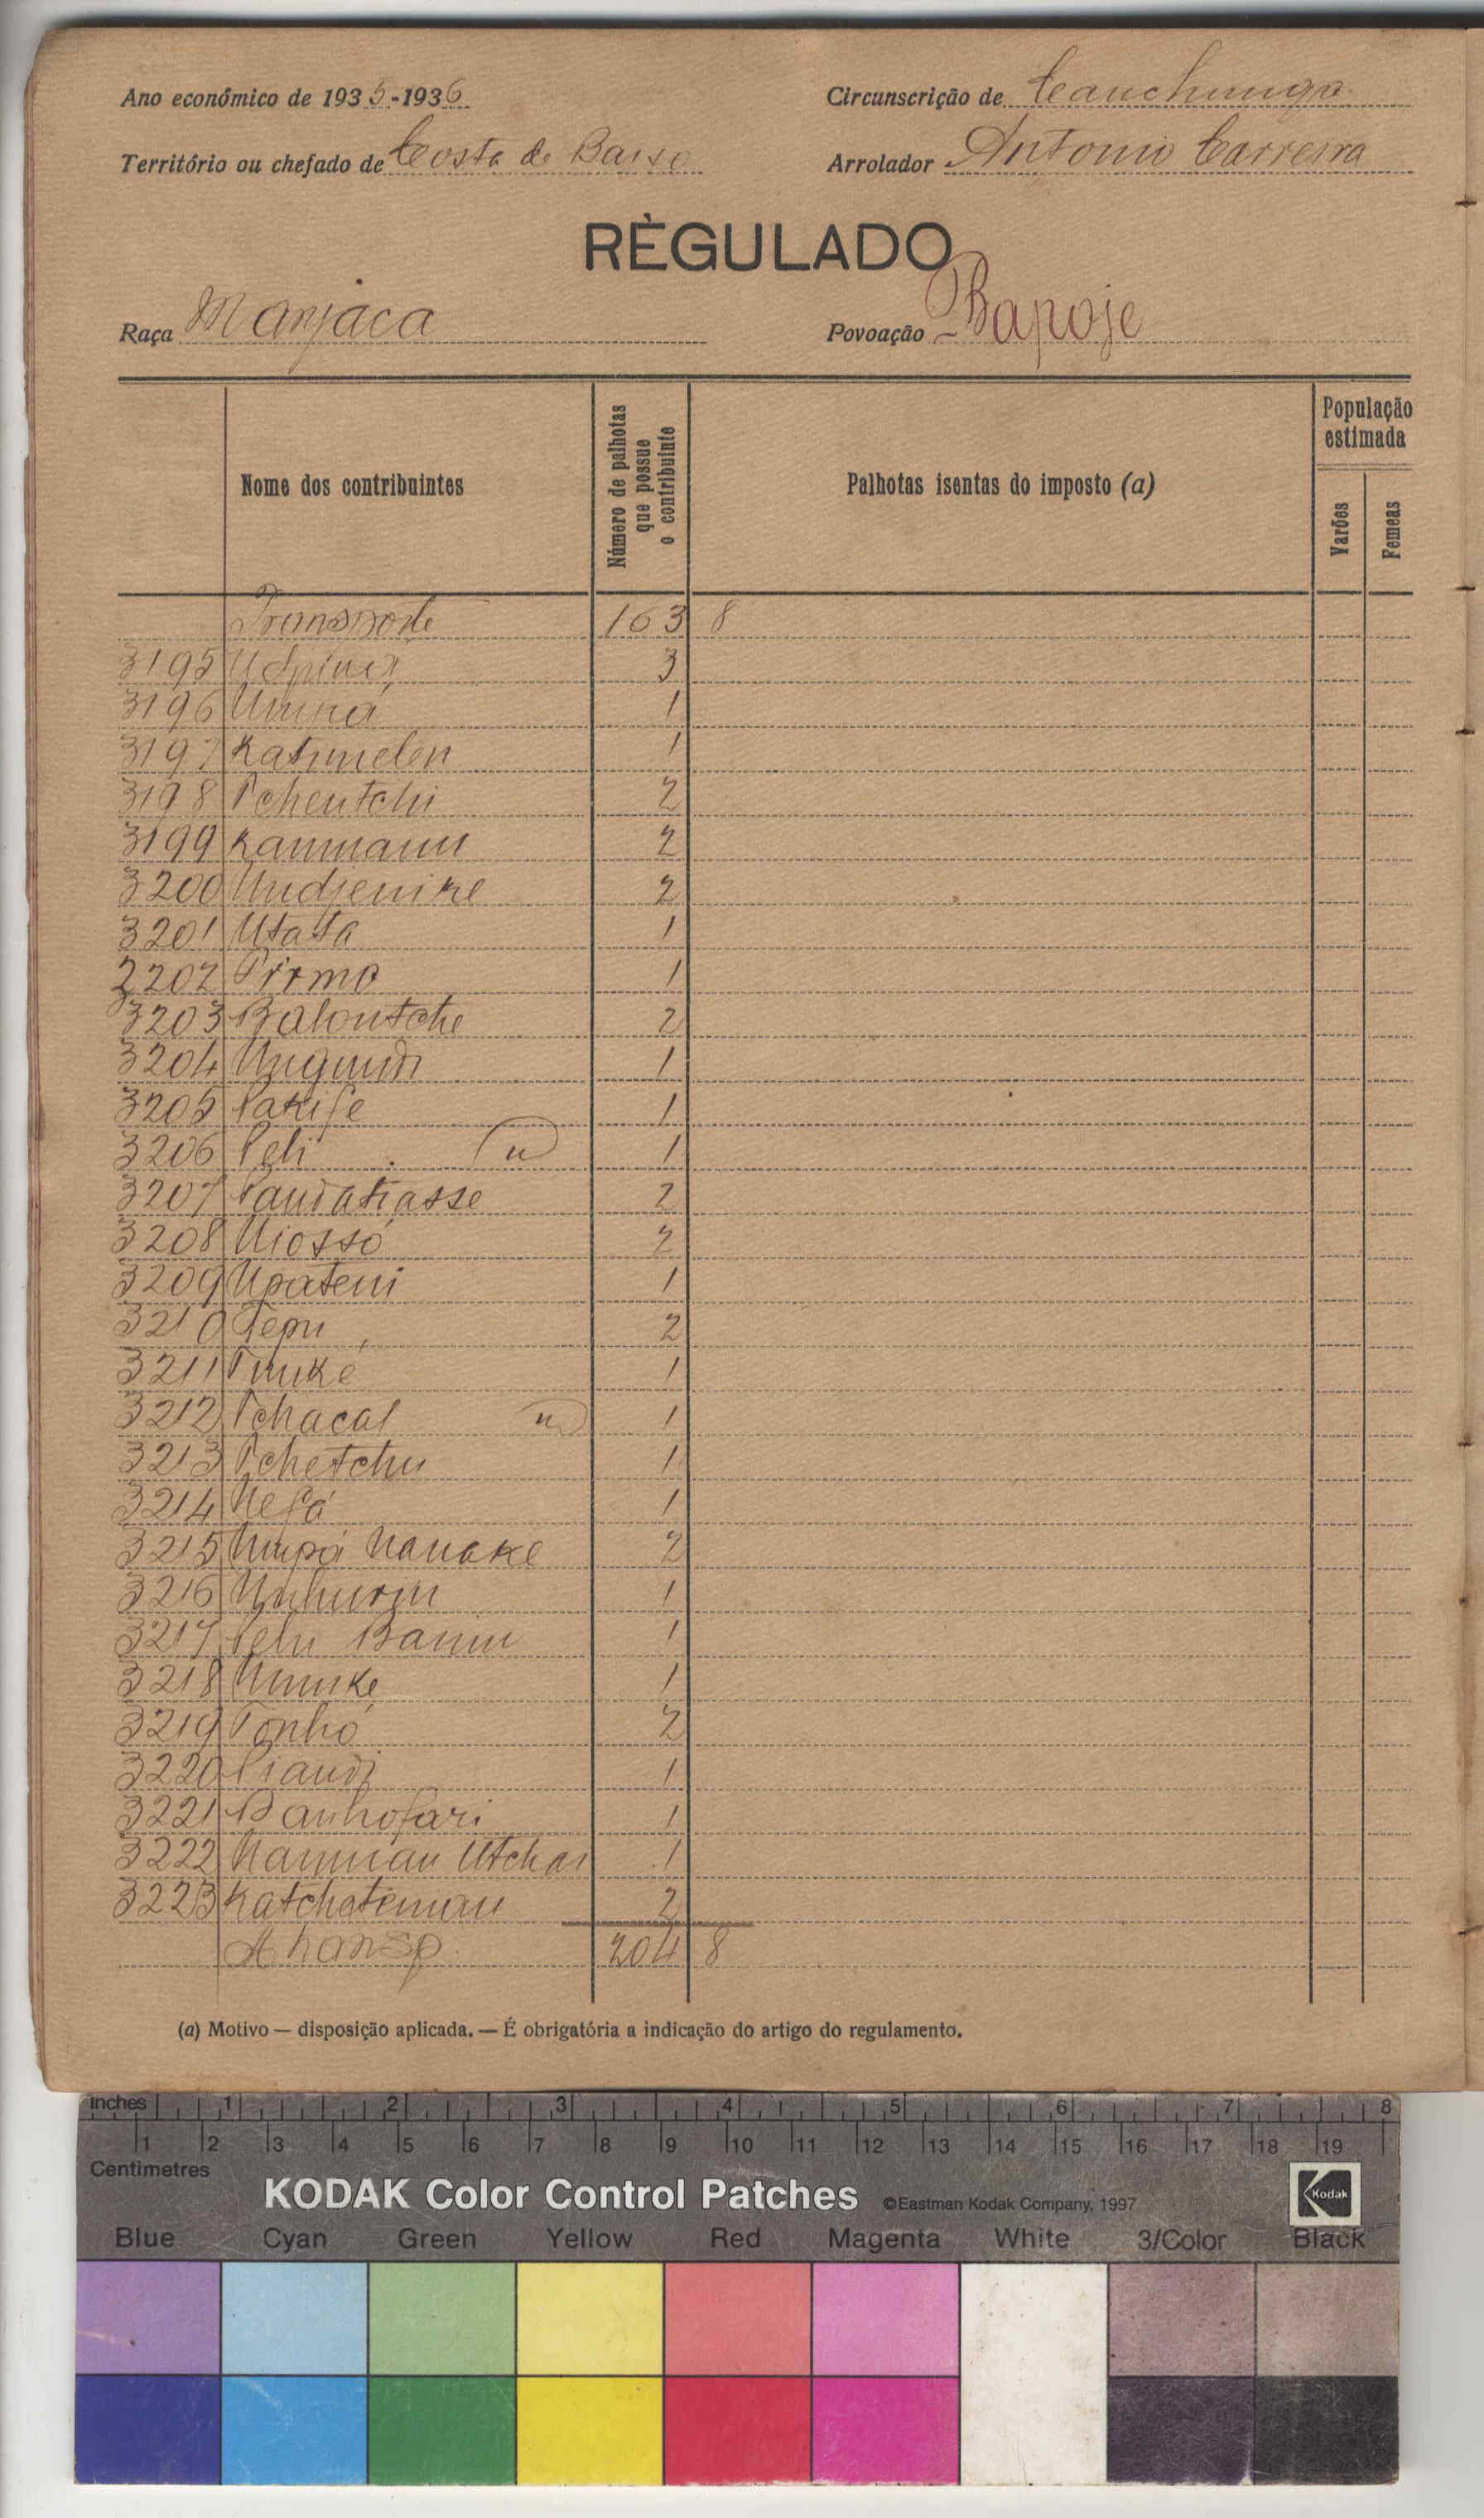 Ano económico de 1935-1936
Circunscrição de Canchungo
Território ou chefado de Costa de Baixo
Arrolador Antonio Carreira
RÈGULADO
Raça Manjaca
Povoação Bapoje
Nome dos contribuintes
Número de palhotas que possue o contribuinte
Palhotas isentas do imposto (a)
População estimada
Varões
Femeas
Transporte 163 8
3195 3
3196 1
3197 Katimelen 1
3198 Tchentchi 2
3199 Kanmann 2
3200 Undjenike 2
3201 Utata 1
2202 Pirmo 1
3203 Baloutche 2
3204 1
3205 Pakife 1
3206 Peli 1
3207 2
3208 Niossó 2
3209 Upateni 1
3210 Tepu 2
3211 1
3212 Tchacal 1
3213 Tchetchu 1
3214 Nefá 1
3215 Nanake 2
3216 1
3217 1
3218 1
3219 Tonhó 2
3220 Piandi 1
3221 Banhofari 1
3222 Utchai 1
3223 2
A transp. 204 8
(a) Motivo — disposição aplicada. — É obrigatória a indicação do artigo do regulamento.
inches 1 2 3 4 5 6 7 8
1 2 3 4 5 6 7 8 9 10 11 12 13 14 15 16 17 18 19
Centimetres
KODAK Color Control Patches ©Eastman Kodak Company, 1997 Kodak
Blue Cyan Green Yellow Red Magenta White 3/Color Black